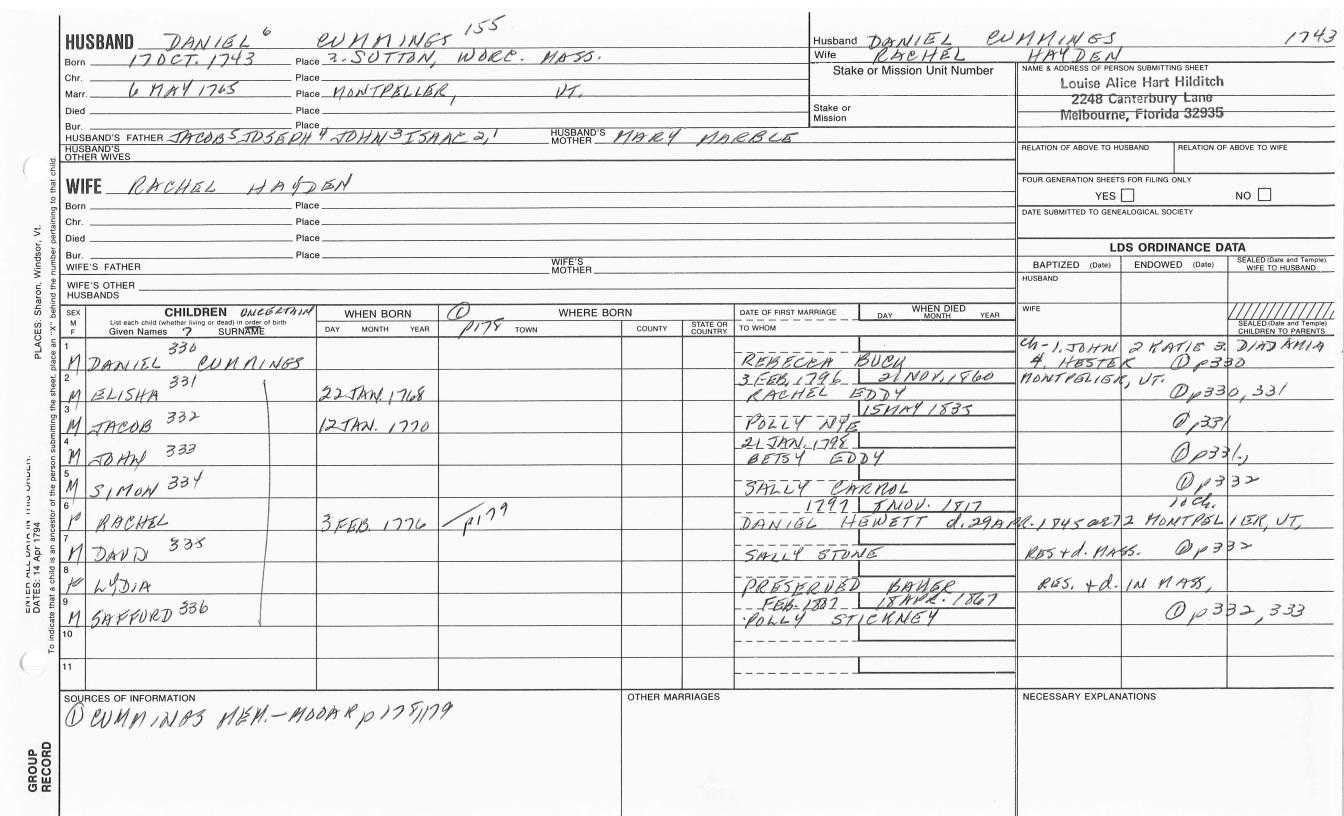 HUSBAND DANIEL 6 CUMMINGS 155
Born 17 OCT. 1743 Place 3. SUTTON, WORC. MASS.
Chr. Place
Marr. 6 MAY 1765 Place MONTPELLER, VT.
Died Place
Bur. Place
HUSBAND'S FATHER JACOB 5 JOSEPH 4 JOHN 3 ISAAC 2,1 HUSBAND'S MOTHER MARY MARBLE
HUSBAND'S OTHER WIVES
Husband DANIEL CUMMINGS 1743
Wife RACHEL HAYDEN
Stake or Mission Unit Number
Stake or Mission
NAME & ADDRESS OF PERSON SUBMITTING SHEET
Louise Alice Hart Hilditch
2248 Canterbury Lane
Melbourne, Florida 32935
RELATION OF ABOVE TO HUSBAND RELATION OF ABOVE TO WIFE
FOUR GENERATION SHEETS FOR FILING ONLY
YES NO
DATE SUBMITTED TO GENEALOGICAL SOCIETY
WIFE RACHEL HAYDEN
Born Place
Chr. Place
Died Place
Bur. Place
WIFE'S FATHER WIFE'S MOTHER
WIFE'S OTHER HUSBANDS
LDS ORDINANCE DATA
BAPTIZED (Date) ENDOWED (Date) SEALED (Date and Temple) WIFE TO HUSBAND
HUSBAND
WIFE
SEALED (Date and Temple) CHILDREN TO PARENTS
SEX M F
CHILDREN UNCERTAIN
List each child (whether living or dead) in order of birth
Given Names ? SURNAME
WHEN BORN
DAY MONTH YEAR
① p178
WHERE BORN
TOWN COUNTY STATE OR COUNTRY
DATE OF FIRST MARRIAGE
TO WHOM
WHEN DIED
DAY MONTH YEAR
1 330 Ch-1. JOHN 2 KATIE 3. DIADAMIA
M DANIEL CUMMINGS REBECKA BUCK 4. HESTER ① p330
2 331 3 FEB. 1796 21 NOV. 1860 MONTPELIER, VT.
M ELISHA 22 JAN. 1768 RACHEL EDDY ① p330, 331
3 332 15 MAY 1835
M JACOB 12 JAN. 1770 POLLY NYE ① p331
4 333 21 JAN. 1798
M JOHN BETSY EDDY ① p331.,
5 334
M SIMON SALLY CARROL ① p332
6 1797 NOV. 1817 10 ch.
F RACHEL 3 FEB. 1776 p179 DANIEL HEWETT d. 29 APR. 1845 72 MONTPELIER, VT,
7 335
M DAVID SALLY STONE RES + d. MASS. ① p332
8
F LYDIA PRESERVED RES. + d. IN MASS,
9 336 FEB. 18 APR. 1867
M SAFFORD POLLY STICKNEY ① p332, 333
10
11
SOURCES OF INFORMATION
① CUMMINGS MEM. p178,179
OTHER MARRIAGES
NECESSARY EXPLANATIONS
PLACES: Sharon, Windsor, Vt.
DATES: 14 Apr 1794
To indicate that a child is an ancestor of the person submitting the sheet, place an "X" behind the number pertaining to that child.
GROUP RECORD